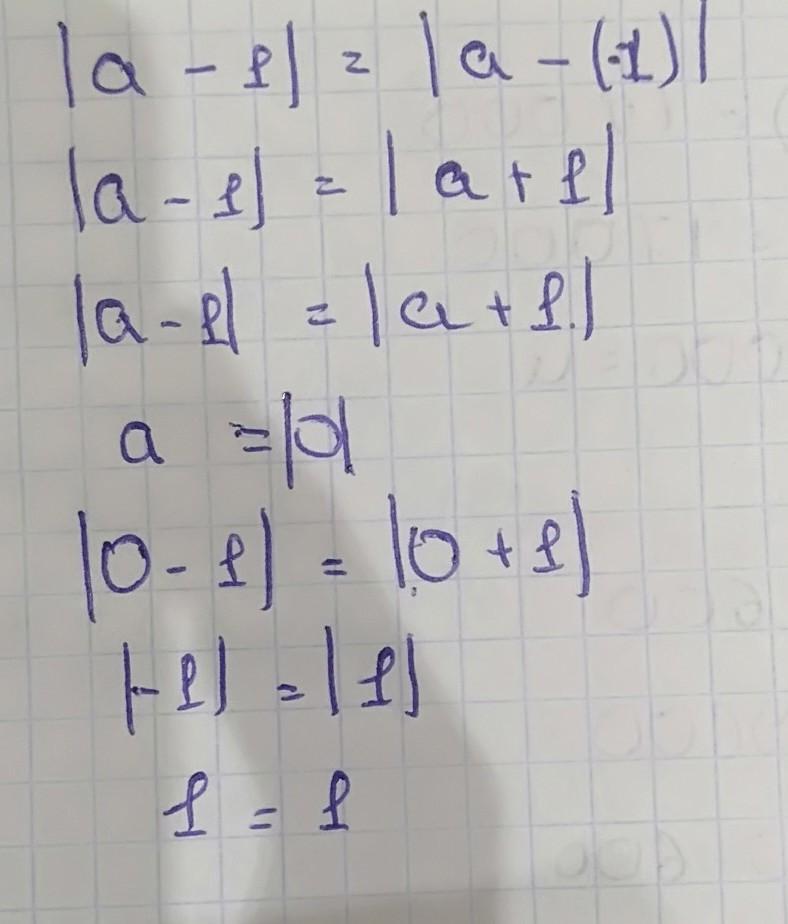 |a - 1| = |a - (-1)|
|a - 1| = |a + 1|
|a - 1| = |a + 1.|
a = |0|
|0 - 1| = |0 + 1|
|-1| = |1|
1 = 1